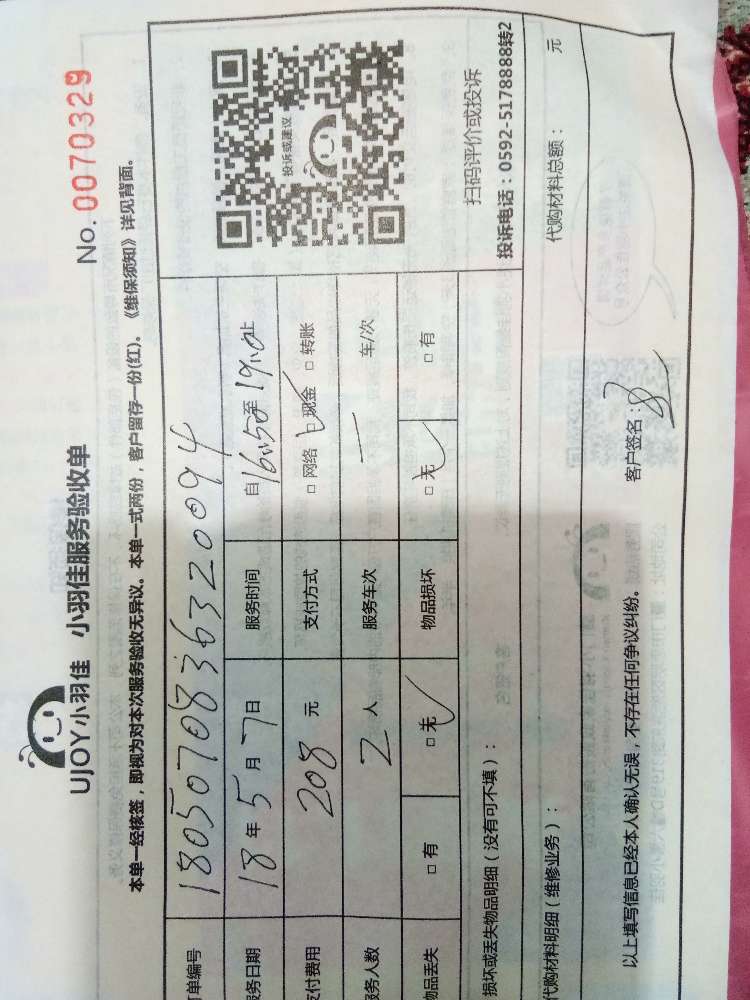 UJOY小羽佳 小羽佳服务验收单
No. 0070329
本单一经核签，即视为对本次服务验收无异议。本单一式两份，客户留存一份(红)。《维保须知》详见背面。
单编号 1805070836320094
务日期 18年5月7日 服务时间 自16:50至19:00止
付费用 208元 支付方式 □网络 □现金 □转账
务人数 2人 服务车次 一 车/次
物品丢失 □有 □无 物品损坏 □无 □有
投诉或建议
扫码评价或投诉
投诉电话：0592-5178888转2
损坏或丢失物品明细（没有可不填）：
代购材料明细（维修业务）： 代购材料总额： 元
以上填写信息已经本人确认无误，不存在任何争议纠纷。 客户签名：